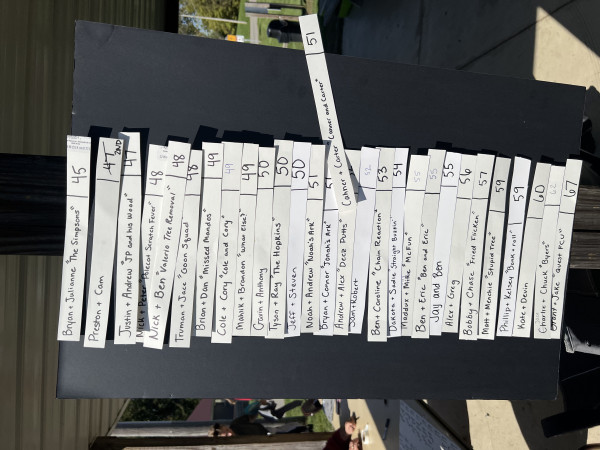 Bryan + Julianne "The Simpsons" 45
Preston + Cam 47 2ND
Justin + Andrew "JP and his Wood" 47
Nick + Peter "Polecat Scratch Fever" 48
Nick + Ben "Valerio Tree Removal" 48
Truman + Jace "Goon Squad" 48
Brian + Dan "Missed Mandos" 49
Cole + Cory "Cole and Cory" 49
Malik + Brandon "What Else?" 49
Gavin + Anthony 50
Tyson + Ray "The Hopkins" 50
Jeff + Steven 50
Noah + Andrew "Noah's Ark" 51
Bryan + Connor "Jonah's Ark" 51
Conner + Carter "Conner and Carter" 51
Andrew + Alex "Deez Putts"
Sam + Robert 52
Ben + Caroline "Chain Reaction" 53
Dakota + Sadie "Straight Buskin" 54
Maddox + Mike "McFun"
Ben + Eric "Ben and Eric" 55
Jay and Ben 55
Alex + Greg 55
Bobby + Chase "Fried Flicken" 56
Matt + Menchie "Stupid Tree" 57
Phillip + Kelsey 59
Kate + Devin 59
Charlie + Chuck "Byers" 60
Grant + Jake "Quest FCU" 62
67